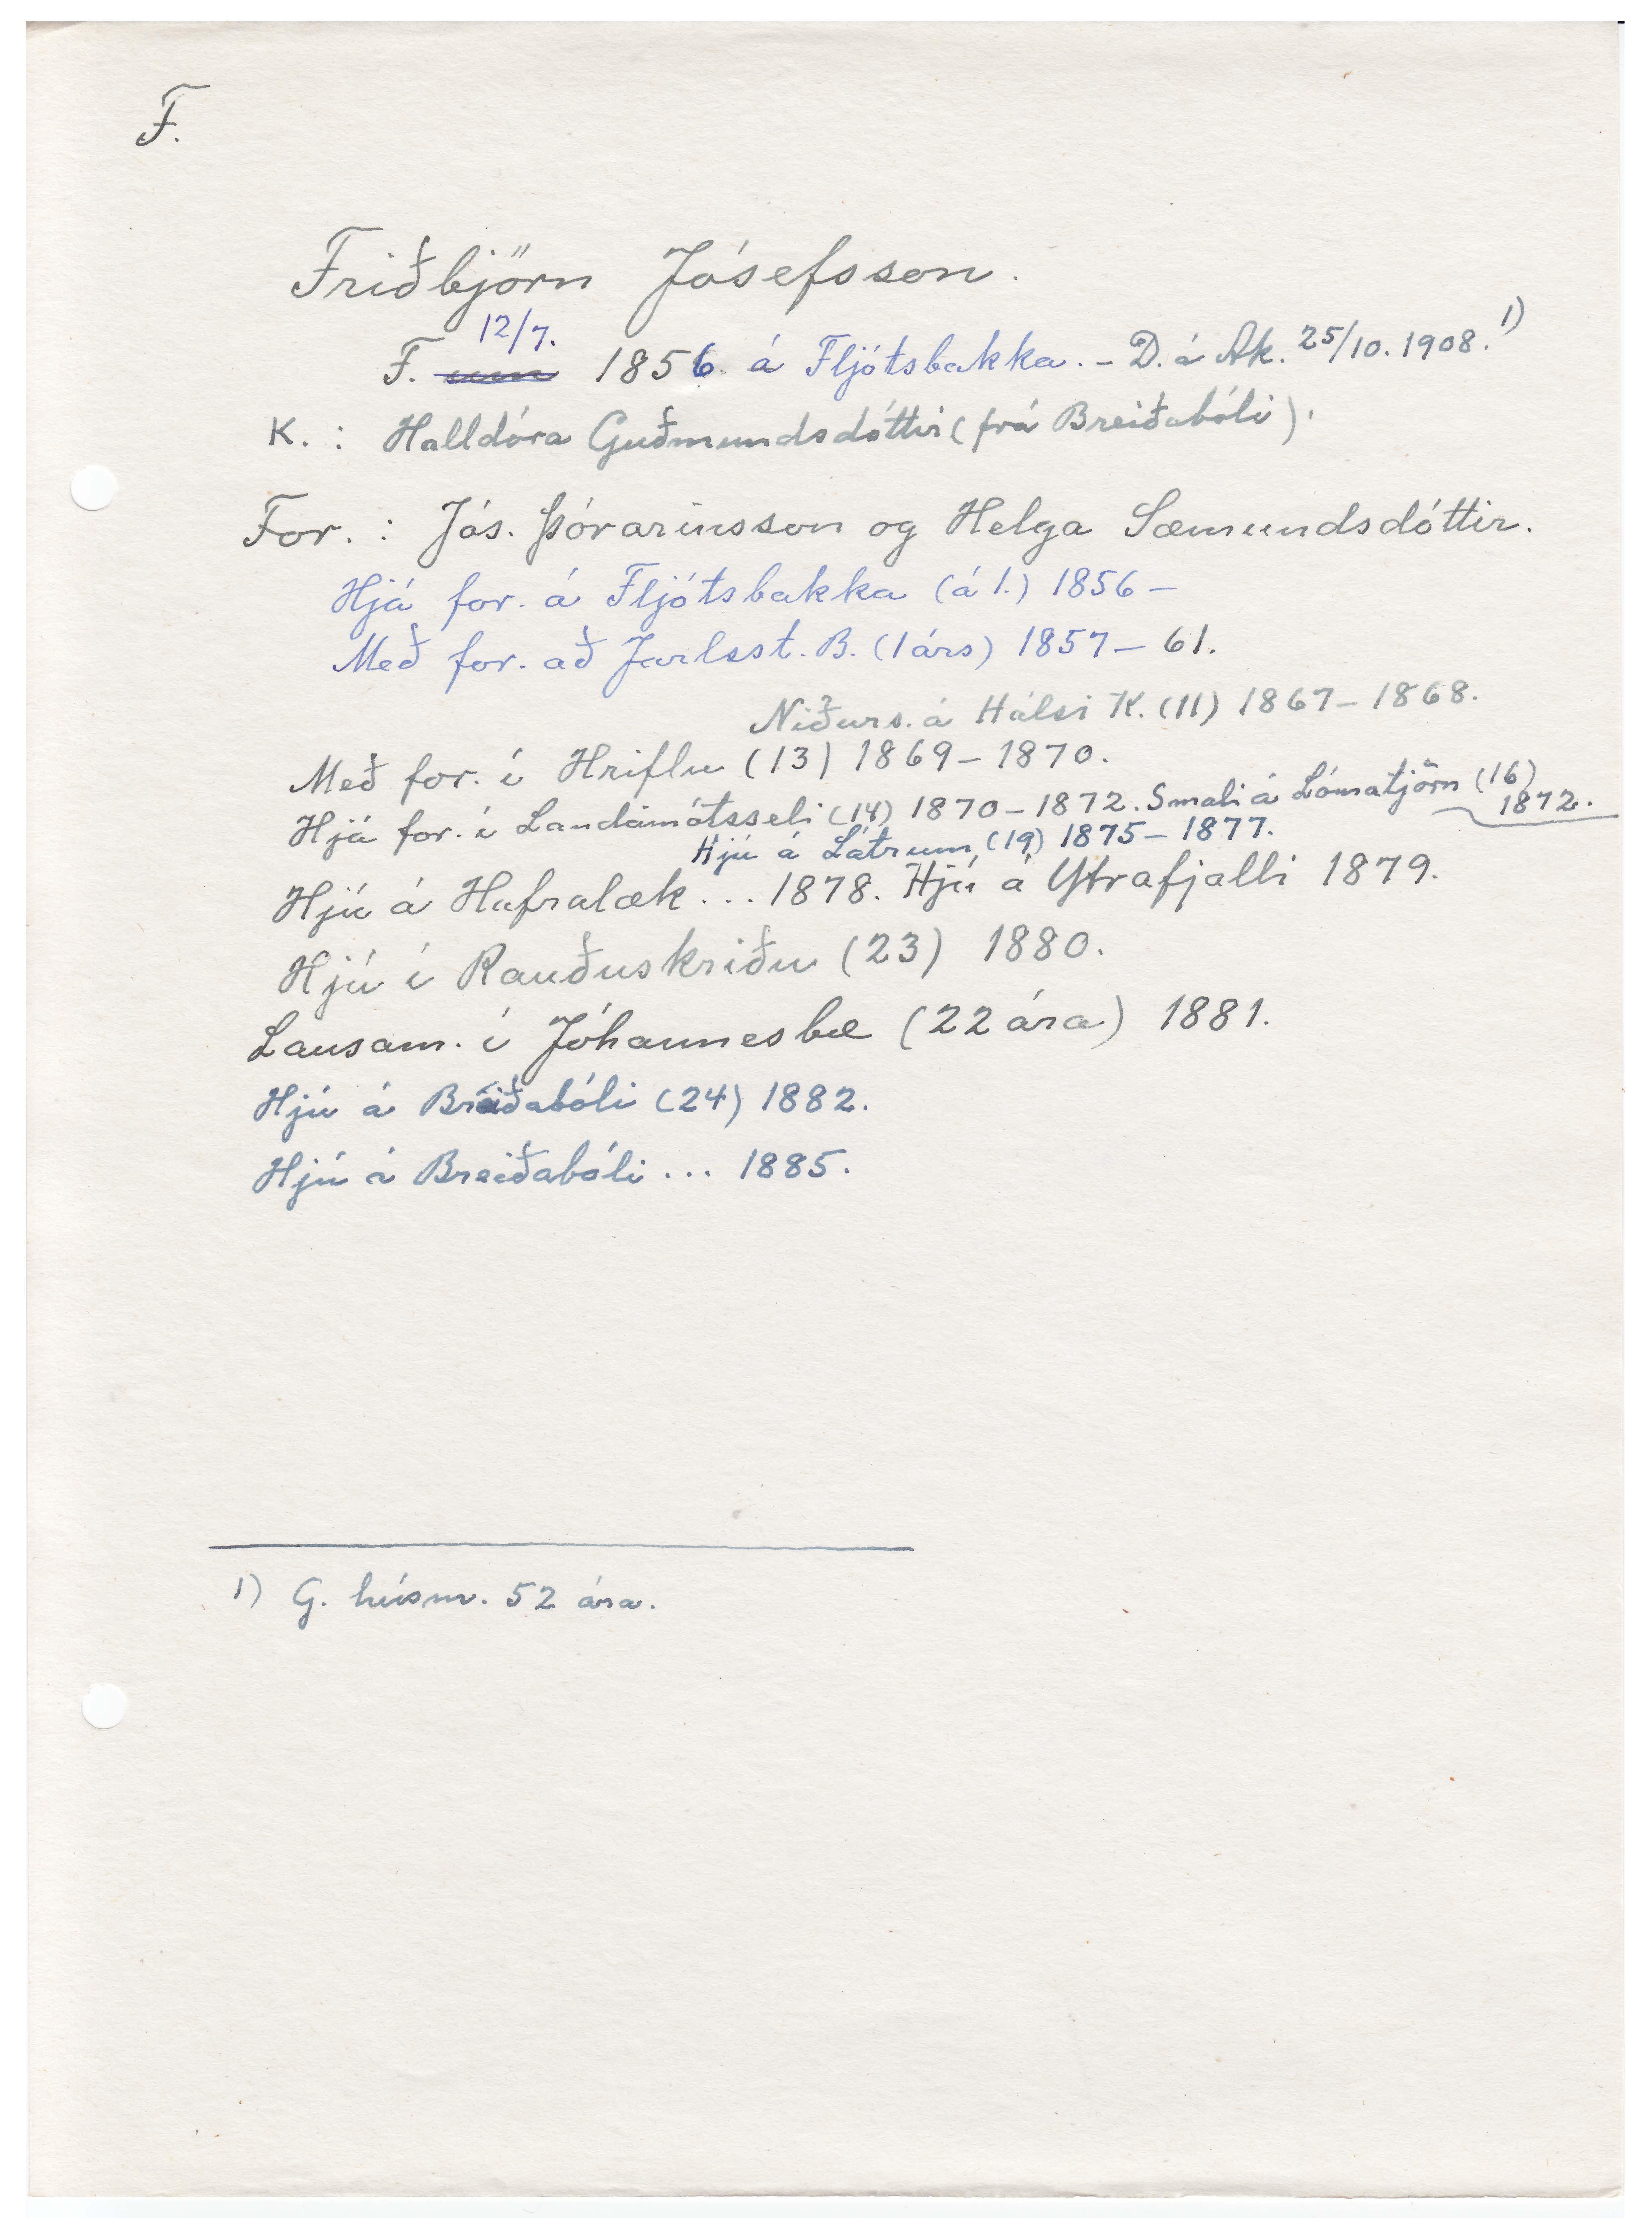 F.
Friðbjörn Jósefsson.
12/7.
F. um 1856 á Fljótsbakka. - D. á Ak. 25/10. 1908. 1)
K. : Halldóra Guðmundsdóttir (frá Breiðabóli).
For. : Jós. Þórarinsson og Helga Sæmundsdóttir.
Hjá for. á Fljótsbakka (á 1.) 1856 -
Með for. að Jarlsst. B. (1 árs) 1857 - 61.
Niðurs. á Hálsi K. (11) 1867 - 1868.
Með for. í Hriflu (13) 1869 - 1870.
Hjá for. í Landamótsseli (14) 1870 - 1872. Smali á Lómatjörn (16)
1872.
Hjú á Látrum (19) 1875 - 1877.
Hjú á Hafralæk ... 1878. Hjú á Ytrafjalli 1879.
Hjú í Rauðuskriðu (23) 1880.
Lausam. í Jóhannesbæ (22 ára) 1881.
Hjú á Breiðabóli (24) 1882.
Hjú á Breiðabóli ... 1885.
1) G. húsm. 52 ára.